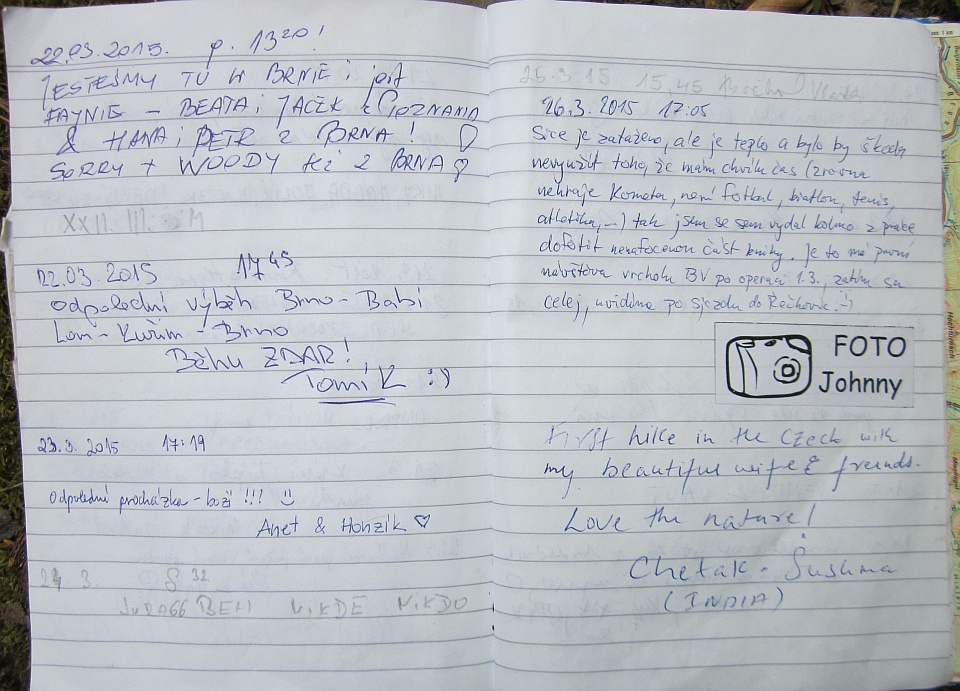 22.03.2015. p. 13 20!
JESTEŚMY TU W BRNIE i jest
FAYNIE - BEATA i JACEK z POZNANIA
& HANA i PETR z BRNA! ♡
SORRY + WOODY též z BRNA ♡
22.03.2015 17 45
Odpolední výběh Brno - Babí
Lom - Kuřim - Brno
Běhu ZDAR!
Tomík :)
23.3.2015 17:19
Odpolední procházka - boží !!! ☺
Anet & Honzík ♡
24 3. 8 32
BĚH NIKDE NIKDO
25.3.15 15,45
26.3.2015 17:05
Sice je zataženo, ale je teplo a bylo by škoda
nevyužít toho, že mám chvilku čas (zrovna
nehraje Kometa, není fotbal, biatlon, tenis,
atletika,...) tak jsem se sem vydal kolmo z práce
dofotit nenafocenou část knihy. Je to má první
návštěva vrcholu BV po operaci 1.3. zatím su
celej, uvidíme po sjezdu do Řečkovic :-)
FOTO
Johnny
First hike in the Czech with
my beautiful wife & freinds.
Love the nature!
Chetak - Sushma
(INDIA)